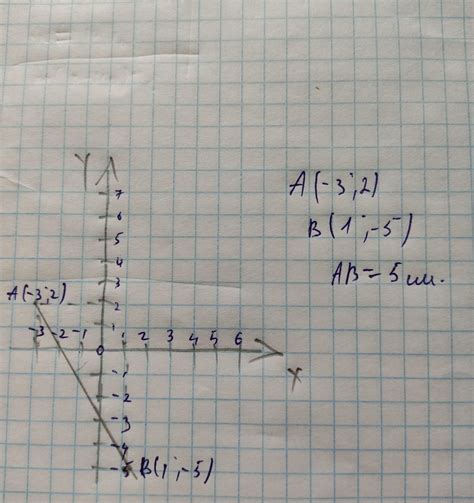 A(-3;2)
B(1;-5)
AB=5см.
Y
7
6
5
4
3
2
1
A(-3;2)
-3 -2 -1 0 1 2 3 4 5 6
X
-1
-2
-3
-4
-5 B(1;-5)